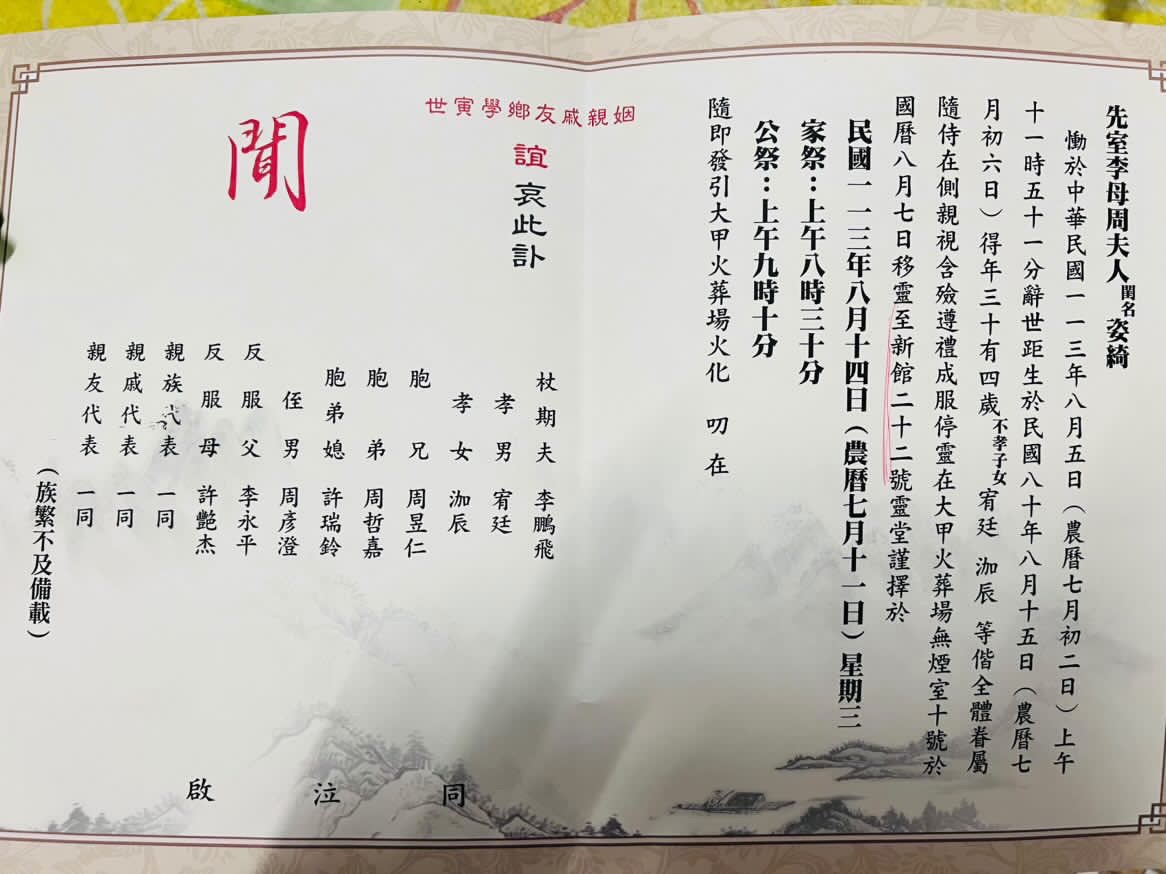 先室李母周夫人閨名姿綺
慟於中華民國一一三年八月五日（農曆七月初二日）上午
十一時五十一分辭世距生於民國八十年八月十五日（農曆七
月初六日）得年三十有四歲不孝子女宥廷 泇辰 等偕全體眷屬
隨侍在側親視含殮遵禮成服停靈在大甲火葬場無煙室十號於
國曆八月七日移靈至新館二十二號靈堂謹擇於
民國一一三年八月十四日（農曆七月十一日）星期三
家祭：上午八時三十分
公祭：上午九時十分
隨即發引大甲火葬場火化 叨在
姻親戚友鄉學寅世
誼 哀此訃
聞
杖期夫 李鵬飛
孝男 宥廷
孝女 泇辰
胞兄 周昱仁
胞弟 周哲嘉
胞弟媳 許瑞鈴
侄男 周彥澄
反服父 李永平
反服母 許艷杰
親族代表 一同
親戚代表 一同
親友代表 一同
（族繁不及備載）
同 泣 啟